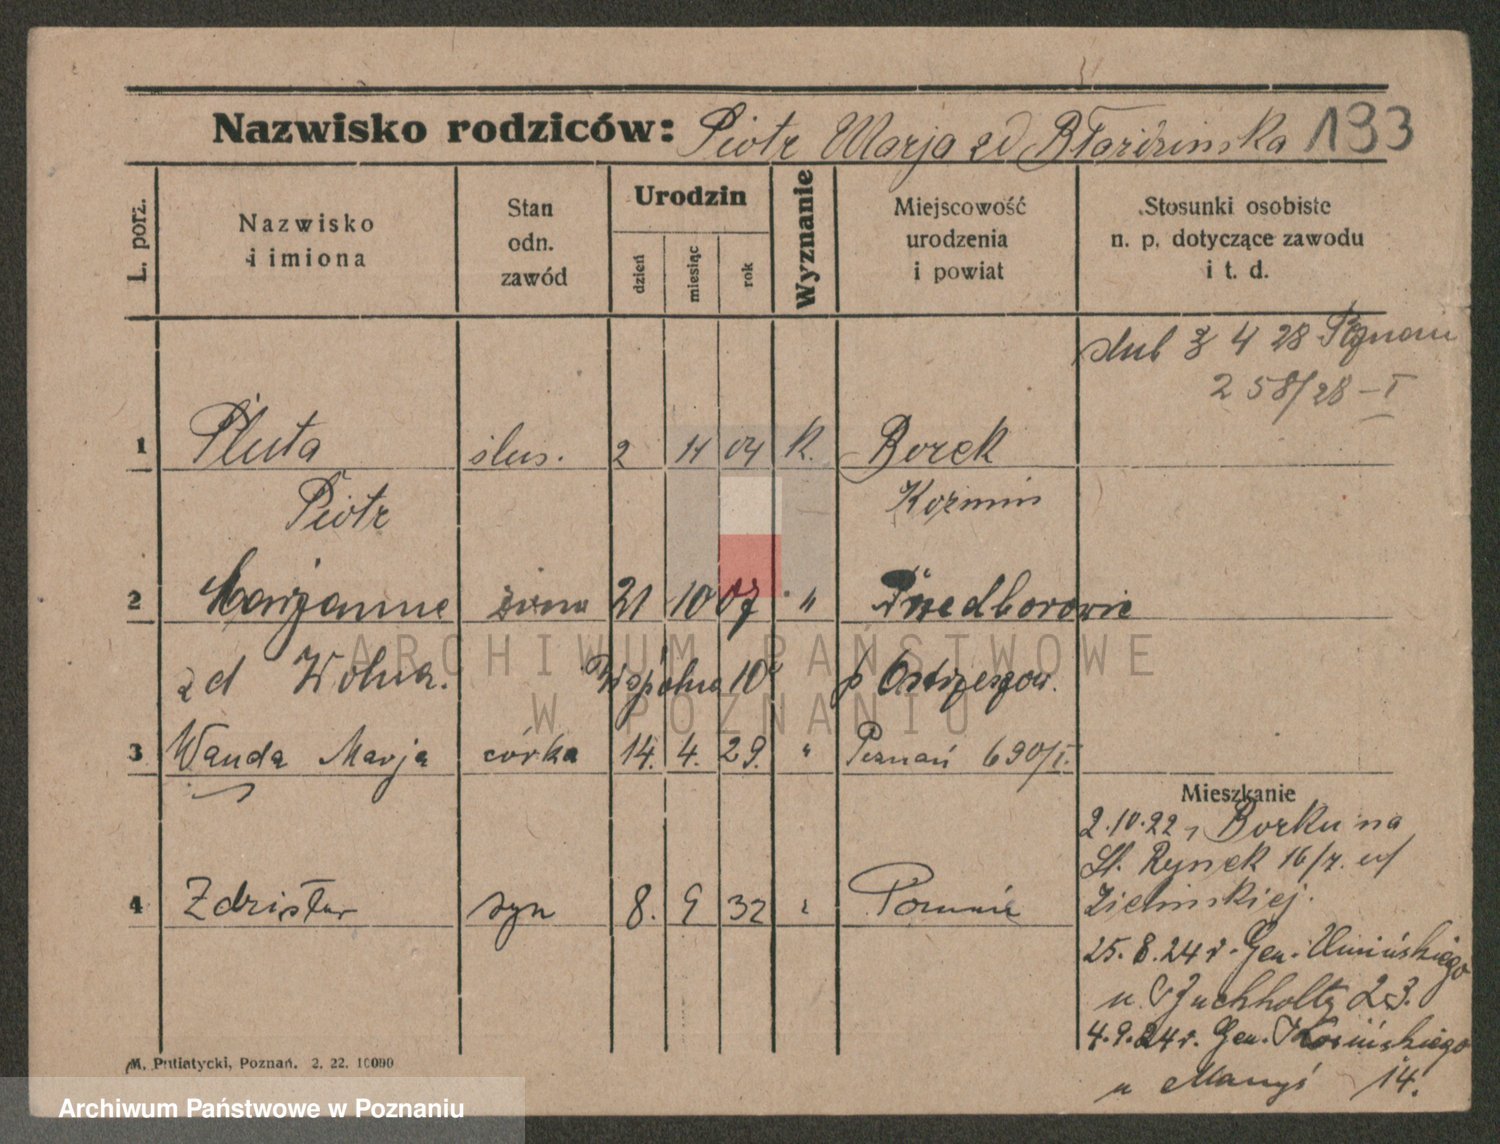 Nazwisko rodziców: Piotr Marja zd Błażińska 193
L. porz.
Nazwisko i imiona
Stan odn. zawód
Urodzin
dzień
miesiąc
rok
Wyznanie
Miejscowość urodzenia i powiat
Stosunki osobiste n. p. dotyczące zawodu i t. d.
slub 4 28 Poznań
258/28 - I
1 Pluta ślus. 2 11 04 K. Borek
Piotr Kozmin
2 Marjanna żona 21 10 07 " Przedborowie
zd Wolna. Wspólna 10 p Ostrzeszow.
3 Wanda Marja córka 14. 4. 29. " Poznań 690/I.
Mieszkanie
2.10.22 z Borku na
St. Rynek 16/7. u/
Zielinskiej.
4 Zdzisław syn 8. 9 32 " Poznań
25.8.24 r. Gen. Umińskiego
u Buchholtz 23.
4.9.24 r. Gen. Kosińskiego
u 14.
M. Putiatycki, Poznań. 2. 22. 10000
ARCHIWUM PAŃSTWOWE
W POZNANIU
Archiwum Państwowe w Poznaniu